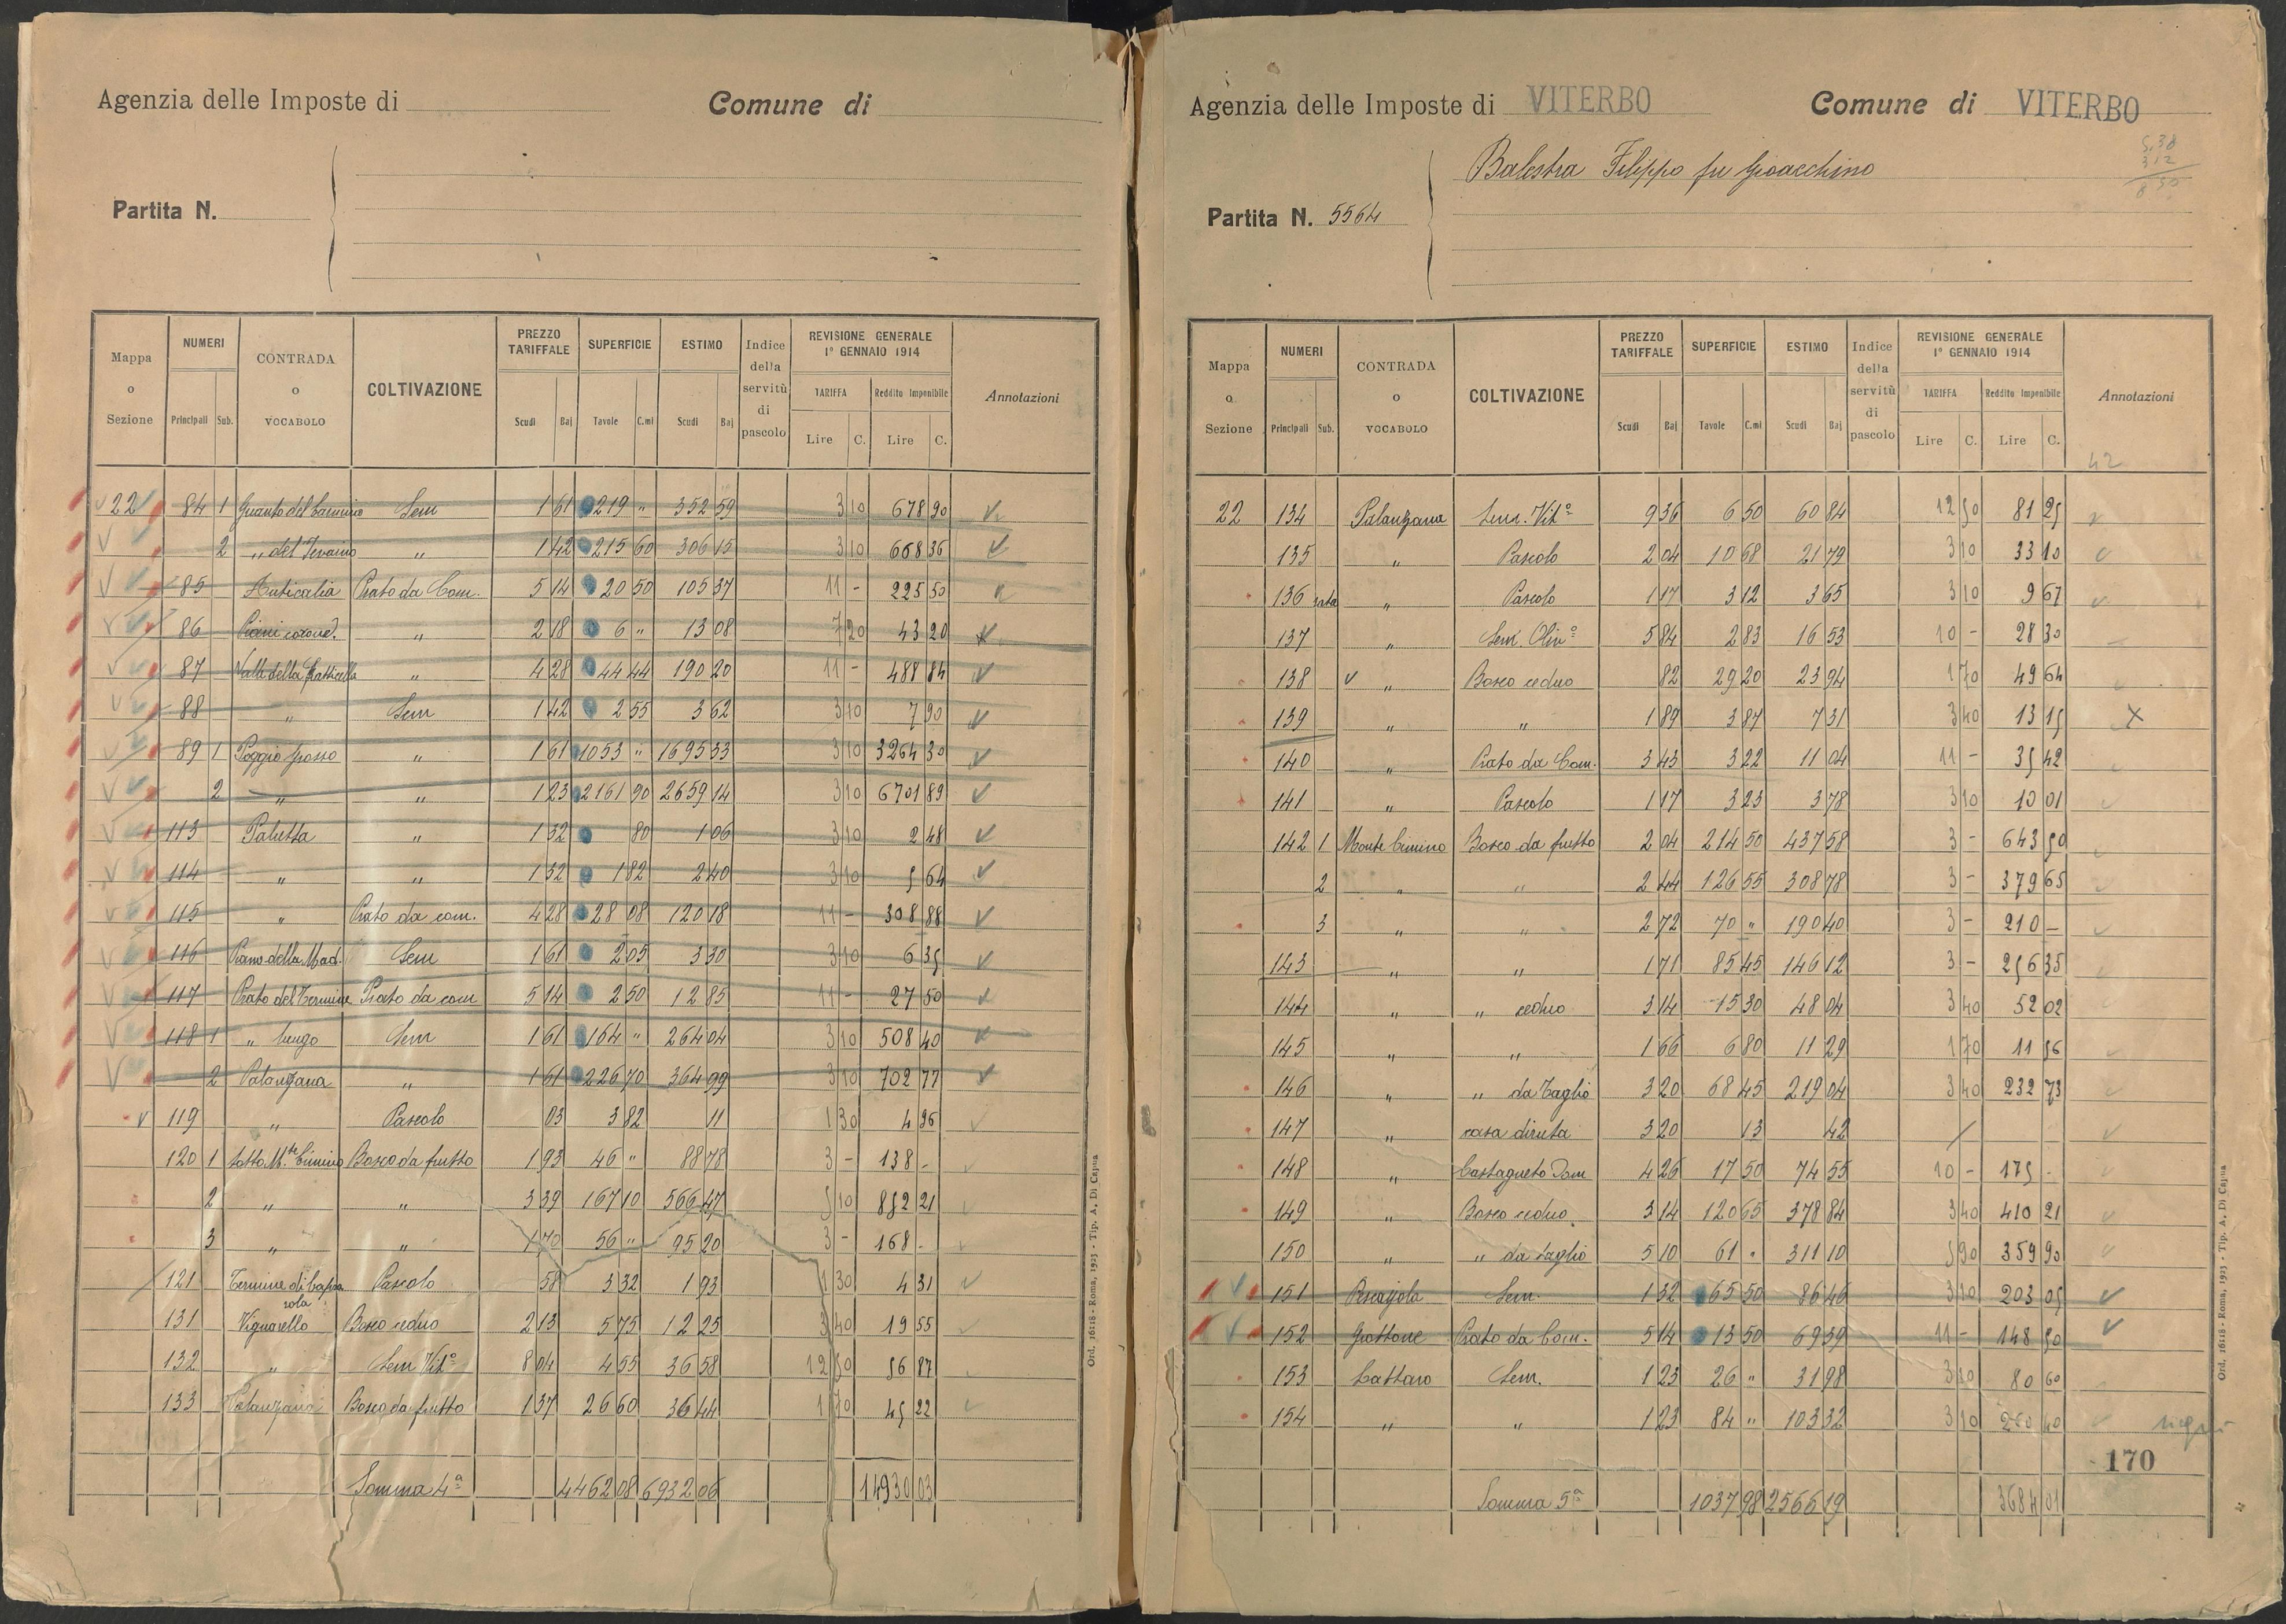 Agenzia delle Imposte di Comune di
Partita N.
Mappa o Sezione NUMERI Principali Sub. CONTRADA o VOCABOLO COLTIVAZIONE PREZZO TARIFFALE Scudi Baj SUPERFICIE Tavole C.mi ESTIMO Scudi Baj Indice della servitù di pascolo REVISIONE GENERALE 1° GENNAIO 1914 TARIFFA Lire C. Reddito Imponibile Lire C. Annotazioni
22 84 1 Sem 1 61 219 " 352 59 3 10 678 90
2 " del " 1 42 215 60 306 15 3 10 668 36
85 Anticalia Prato da Com. 5 14 20 50 105 37 11 - 225 50
86 Piani " 2 18 6 " 13 08 7 20 43 20
87 Valle della " 4 28 44 44 190 20 11 - 488 84
88 " Sem 1 42 2 55 3 62 3 10 7 90
89 1 Poggio " 1 61 1053 " 1695 33 3 10 3264 30
2 " " 1 23 2161 90 2659 14 3 10 6701 89
113 Paletta " 1 32 80 1 06 3 10 2 48
114 " " 1 32 1 82 2 40 3 10 5 64
115 " Prato da com. 4 28 28 08 120 18 11 - 308 88
116 Piano della Mad. Sem 1 61 2 05 3 30 3 10 6 35
117 Prato del Termine Prato da com 5 14 2 50 12 85 11 - 27 50
118 1 " lungo Sem 1 61 164 " 264 04 3 10 508 40
2 Palanzana " 1 61 226 70 364 99 3 10 702 77
119 " Pascolo 03 3 82 11 1 30 4 96
120 1 Sotto M.te Cimino Bosco da frutto 1 93 46 " 88 78 3 - 138 -
2 " " 3 39 167 10 566 47 5 10 852 21
3 " " 1 70 56 " 95 20 3 - 168 -
121 Termine di Caprarola Pascolo 58 3 32 1 93 1 30 4 31
131 Vignarello Bosco ceduo 2 13 5 75 12 25 3 40 19 55
132 " Sem Vit° 8 04 4 55 36 58 12 50 56 87
133 Palanzana Bosco da frutto 1 37 26 60 36 44 1 70 45 22
Somma 4ª 4462 08 6932 06 14930 03
Ord. 16118 - Roma, 1923 - Tip. A. Di Capua
Agenzia delle Imposte di VITERBO Comune di VITERBO
Balestra Filippo fu Gioacchino
Partita N. 5564
5,38
3 12
8 50
Mappa o Sezione NUMERI Principali Sub. CONTRADA o VOCABOLO COLTIVAZIONE PREZZO TARIFFALE Scudi Baj SUPERFICIE Tavole C.mi ESTIMO Scudi Baj Indice della servitù di pascolo REVISIONE GENERALE 1° GENNAIO 1914 TARIFFA Lire C. Reddito Imponibile Lire C. Annotazioni
42
22 134 Palanzana Sem. Vit° 9 36 6 50 60 84 12 50 81 25
135 " Pascolo 2 04 10 68 21 79 3 10 33 10
136 rata " Pascolo 1 17 3 12 3 65 3 10 9 67
137 " Sem. Oliv° 5 84 2 83 16 53 10 - 28 30
138 " Bosco ceduo 82 29 20 23 94 1 70 49 64
139 " " 1 89 3 87 7 31 3 40 13 15 X
140 " Prato da Com. 3 43 3 22 11 04 11 - 35 42
141 " Pascolo 1 17 3 23 3 78 3 10 10 01
142 1 Monte Cimino Bosco da frutto 2 04 214 50 437 58 3 - 643 50
2 " " 2 44 126 55 308 78 3 - 379 65
3 " " 2 72 70 " 190 40 3 - 210 -
143 " " 1 71 85 45 146 12 3 - 256 35
144 " " ceduo 3 14 15 30 48 04 3 40 52 02
145 " " 1 66 6 80 11 29 1 70 11 56
146 " " da Taglio 3 20 68 45 219 04 3 40 232 73
147 " casa diruta 3 20 13 42 /
148 " Castagneto Dom 4 26 17 50 74 55 10 - 175 -
149 " Bosco ceduo 3 14 120 65 378 84 3 40 410 21
150 " " da taglio 5 10 61 " 311 10 5 90 359 90
151 Sem. 1 32 65 50 86 46 3 10 203 05
152 Grottone Prato da Com. 5 14 13 50 69 39 11 - 148 50
153 Cattaro Sem. 1 23 26 " 31 98 3 10 80 60
154 " " 1 23 84 " 103 32 3 10 260 40
170
Somma 5ª 1037 98 2566 19 3684 01
Ord. 16118 - Roma, 1923 - Tip. A. Di Capua